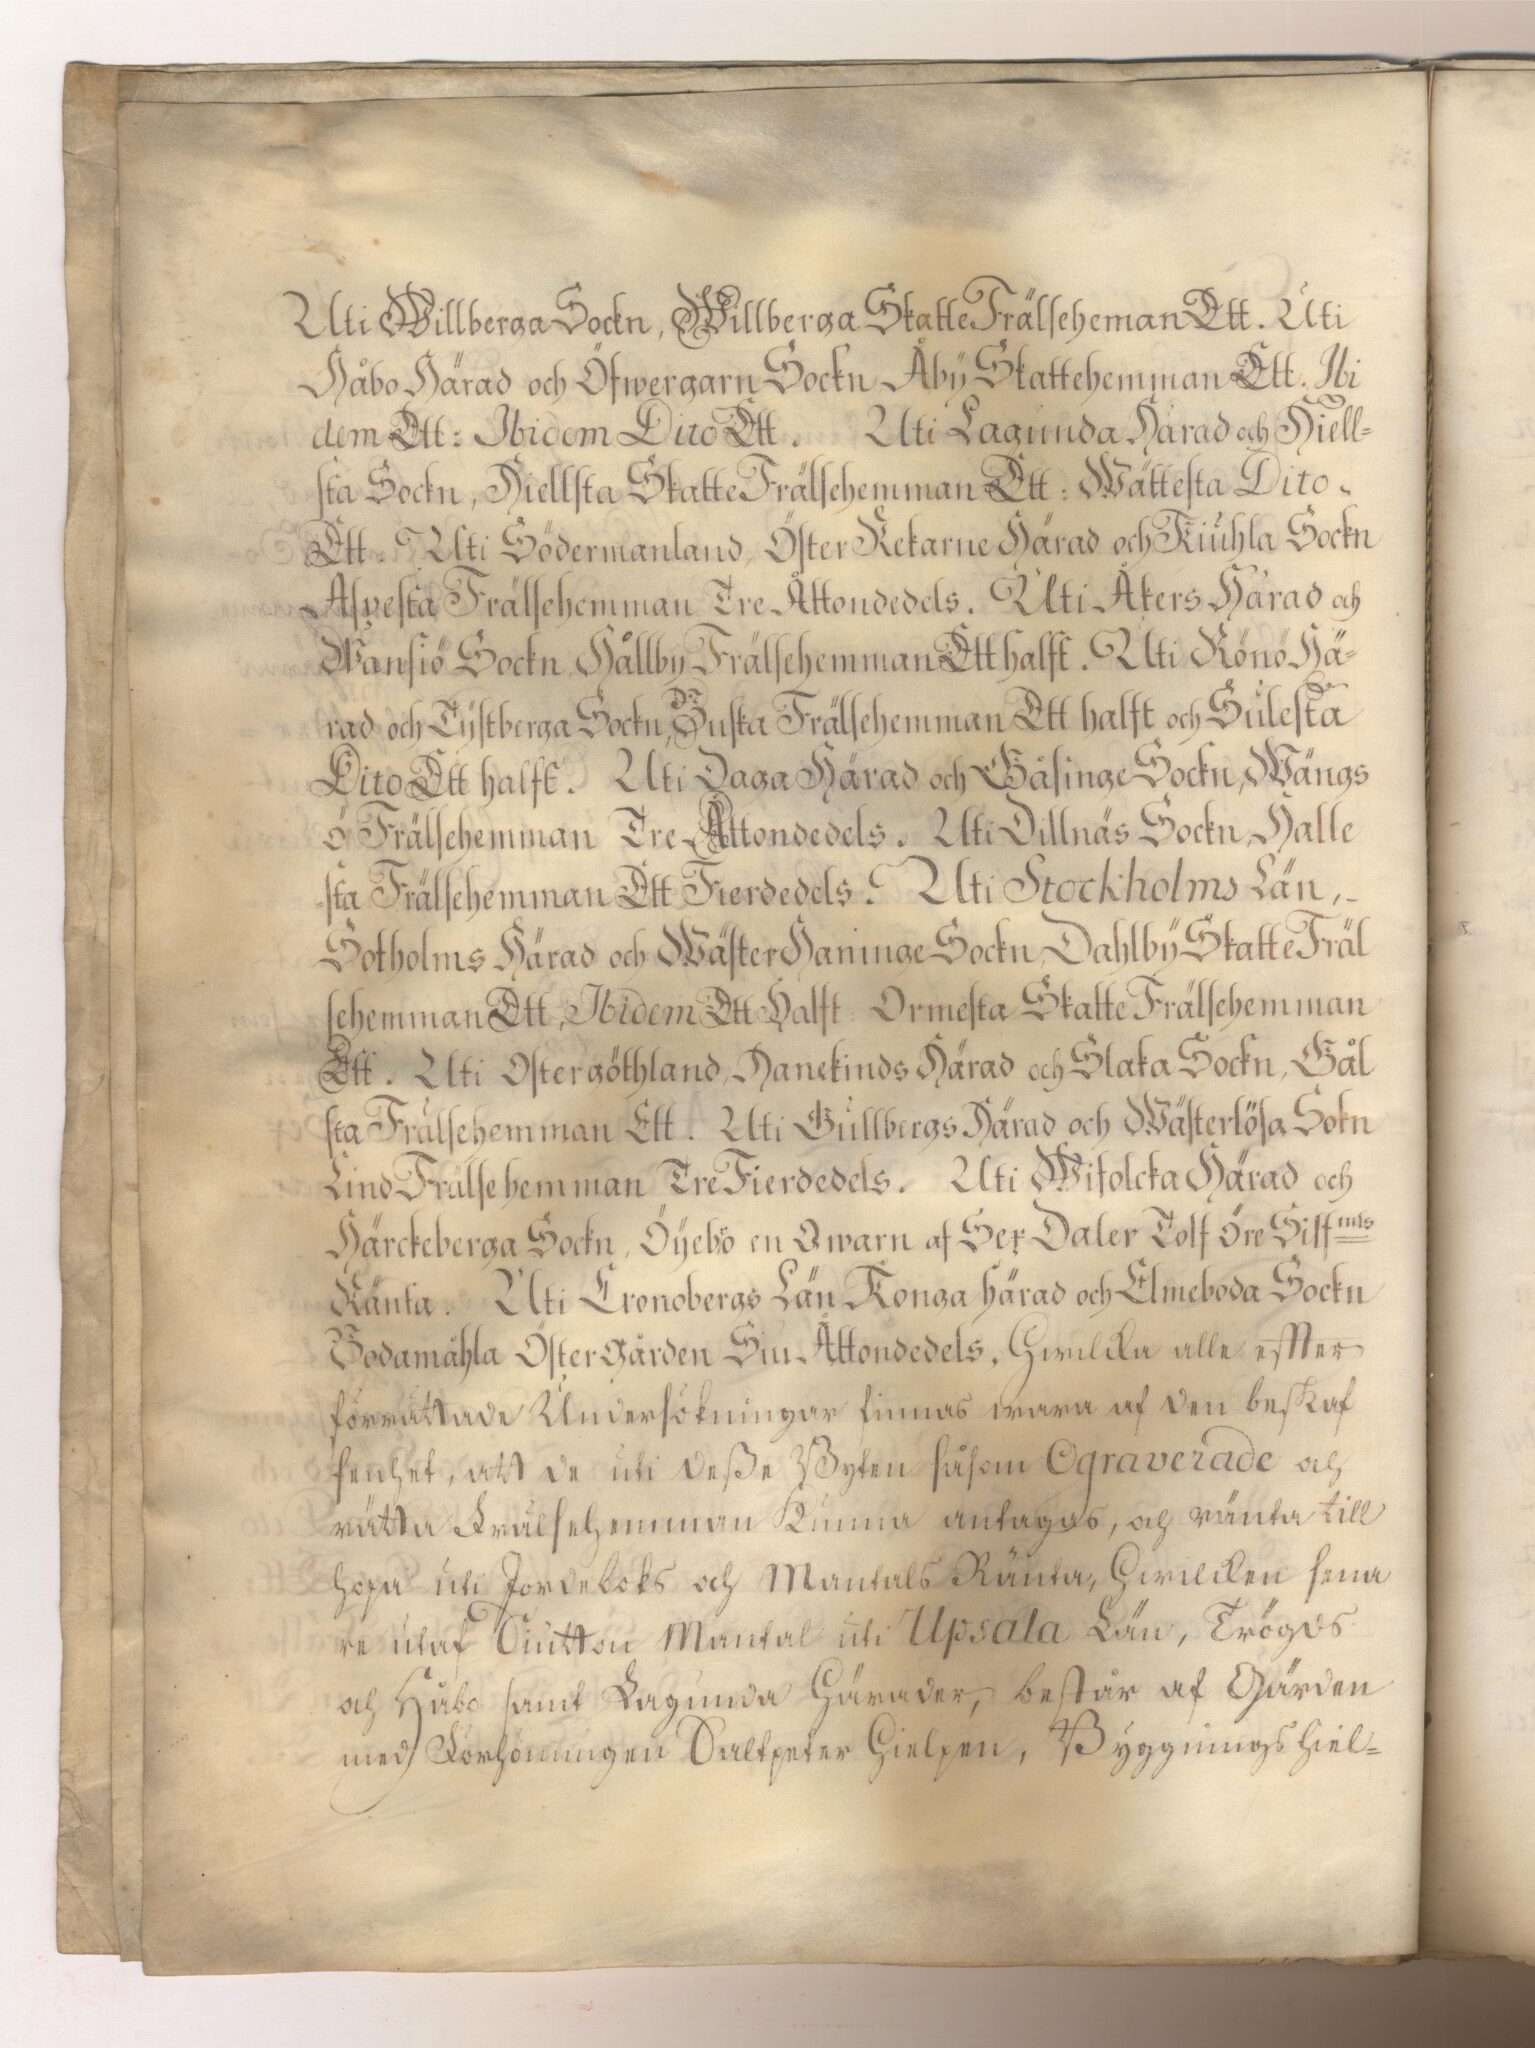 Uti Willberga Sockn, Willberga Skatte Frälseheman Ett. Uti
Håbo Härad och Öfwergarn Sockn Åby Skattehemman Ett. Ibi
dem Ett: Ibidem Dito Ett. Uti Lagunda Härad och Hiell-
sta Sockn, Hiellsta Skatte Frälsehemman Ett: Wättesta Dito
Ett. Uti Södermanland, Öster Rekarne Härad och Kiuhla Sockn
Aspesta Frälsehemman Tre Åttondedels. Uti Åkers Härad och
Wansiö Sockn, Hållby Frälsehemman Ett halft. Uti Rönö Hä-
rad och Tystberga Sockn, Susta Frälsehemman Ett halft och Sulesta
Dito Ett halft. Uti Daga Härad och Gåsinge Sockn, Wängs
ö Frälsehemman Tre Åttondedels. Uti Dillnäs Sockn, Halle
sta Frälsehemman Ett Fierdedels. Uti Stockholms Län,
Sotholms Härad och Wäster Haninge Sockn, Dahlby Skatte Fräl
sehemman Ett, Ibidem Ett Halft Ormesta Skatte Frälsehemman
Ett. Uti Ostergöthland, Hanekinds Härad och Slaka Sockn, Gål
sta Frälsehemman Ett. Uti Gullbergs Härad och Wästerlösa Sokn
Lind Frälsehemman Tre Fierdedels. Uti Wifolcka Härad och
Härckeberga Sockn, Öyebo en Qwarn af Sex Daler Tolf öre Silfmts
Ränta. Uti Cronobergs Län Konga härad och Elmeboda Sockn
Bodamåhla Östergården Siu Åttondedels, Hwilcka alle effter
förrättade Undersökningar finnas wara af den beskaf
fenhet, att de uti deße Byten såsom Ograverade och
rätta Frälsehemman Kunna antagas, och ränta till
hopa uti Jordeboks och Mantals Ränta, Hwilcken sena
re utaf Siutton Mantal uti Upsala Län, Trögds
och Håbo samt Lagunda Härader, består af Gärden
med Förhöningen Saltpeter Hielpen, Byggnings Hiel-